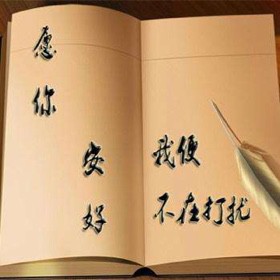 愿
你
安
好
我便
不在打扰